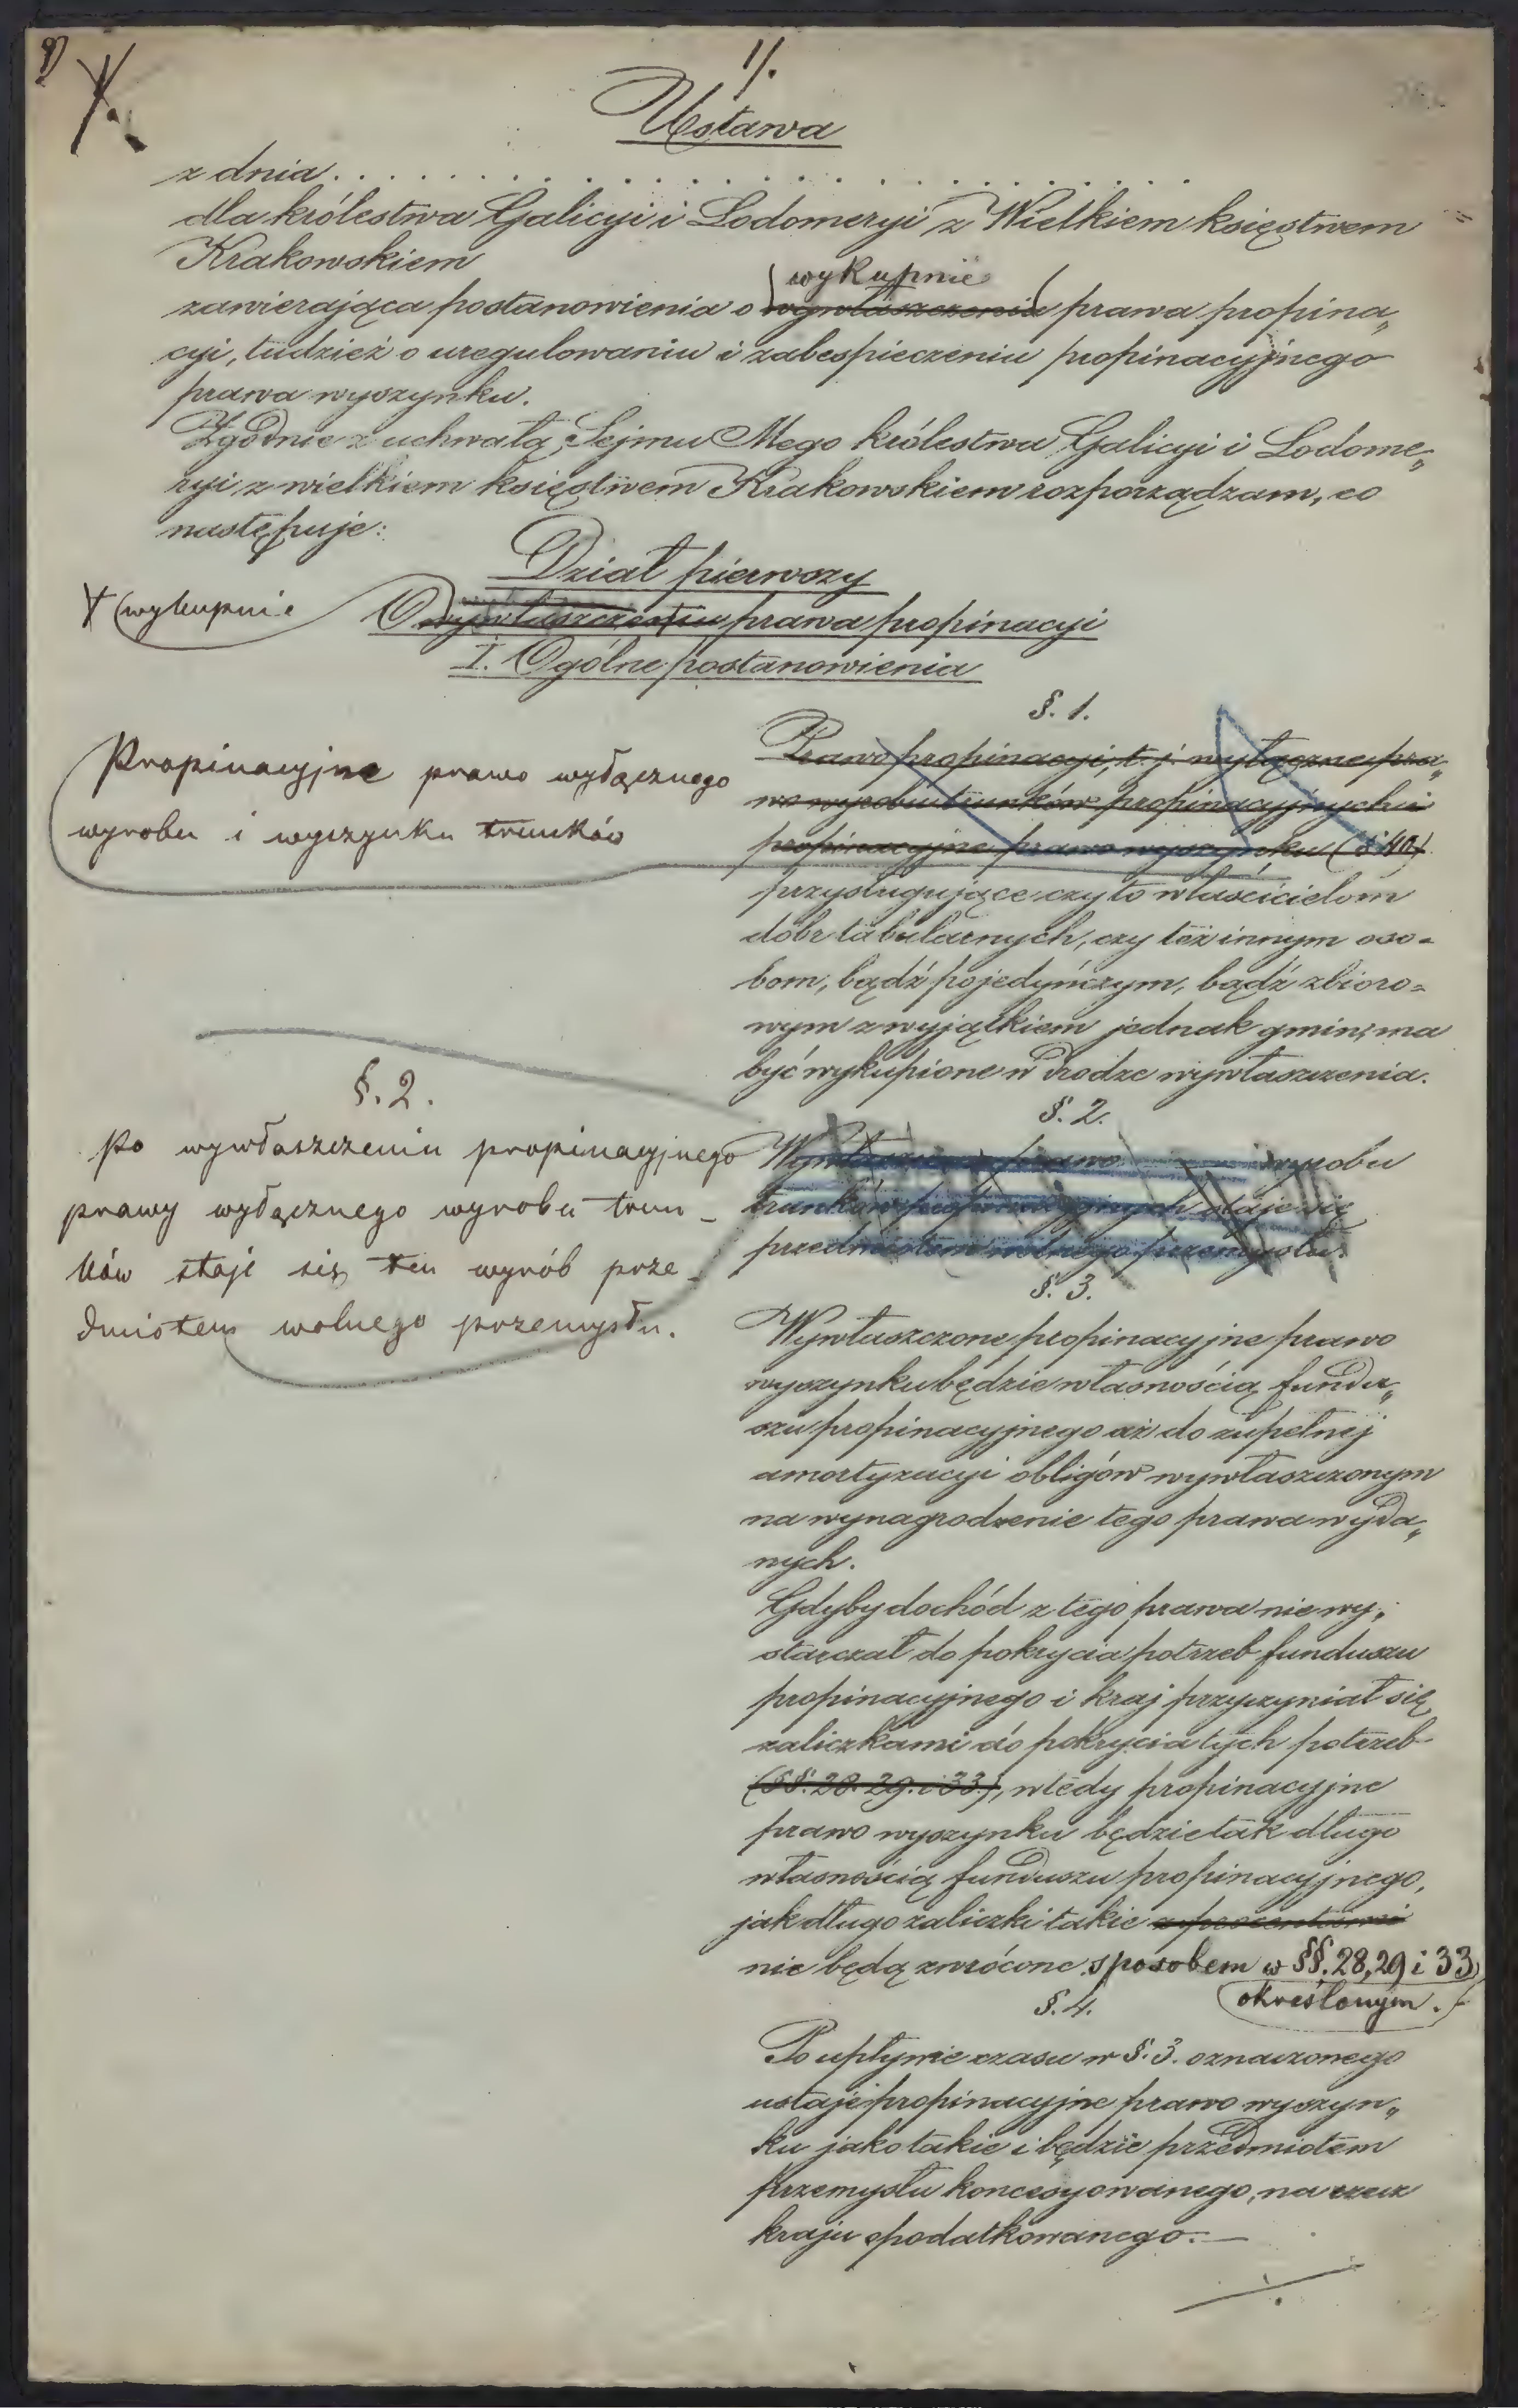 1/.
Ustawa
z dnia . . . . . . . . . . . . . . . . . . . .
dla królestwa Galicyi i Lodomeryi z Wielkiem księstwem
Krakowskiem
wykupnie
zawierająca postanowienia o wywłaszczeniu prawa propina„
cyi, tudzież o uregulowaniu i zabespieczeniu propinacyjnego
prawa wyszynku.
Zgodnie z uchwałą Sejmu Mego królestwa Galicyi i Lodome„
ryi z wielkiem księstwem Krakowskiem rozporządzam, co
następuje:
Dział pierwszy
wykupnie
O wywłaszczeniu prawa propinacyi
I. Ogólne postanowienia
§. 1.
Propinacyjne prawo wyłącznego
wyrobu i wyszynku trunków
Prawo propinacyi, t. j. wyłączne pra„
wo wyrobu trunków propinacyjnych i
propinacyjne prawo wyszynku (§ 40)
przysługujące czy to właścicielom
dóbr tabularnych, czy też innym oso=
bom, bądź pojedyńczym, bądź zbioro=
wym z wyjątkiem jednak gmin, ma
być wykupione w drodze wywłaszczenia.
§. 2.
Po wywłaszczeniu propinacyjnego
prawy wyłącznego wyrobu trun_
ków staje się ten wyrób prze_
dmiotem wolnego przemysłu.
§. 2.
prawo wyrobu
trunków propinacyjnych staje się
przedmiotem wolnego przemysłu.
§. 3.
Wywłaszczone propinacyjne prawo
wyszynku będzie własnością fundu„
szu propinacyjnego aż do zupełnej
amortyzacyi obligów wywłaszczonym
na wynagrodzenie tego prawa wyda„
nych.
Gdyby dochód z tego prawa nie wy„
starczał do pokrycia potrzeb funduszu
propinacyjnego i kraj przyczyniał się
zaliczkami do pokrycia tych potrzeb
(§§. 28. 29. i 33.), wtedy propinacyjne
prawo wyszynku będzie tak długo
własnością funduszu propinacyjnego,
jak długo zaliczki takie z procentami
nie będą zwrócone sposobem w §§. 28, 29 i 33
określonym.
§. 4.
Po upływie czasu w §. 3. oznaczonego
ustaje propinacyjne prawo wyszyn„
ku jako takie i będzie przedmiotem
przemysłu koncesyowanego, na rzecz
kraju opodatkowanego. —